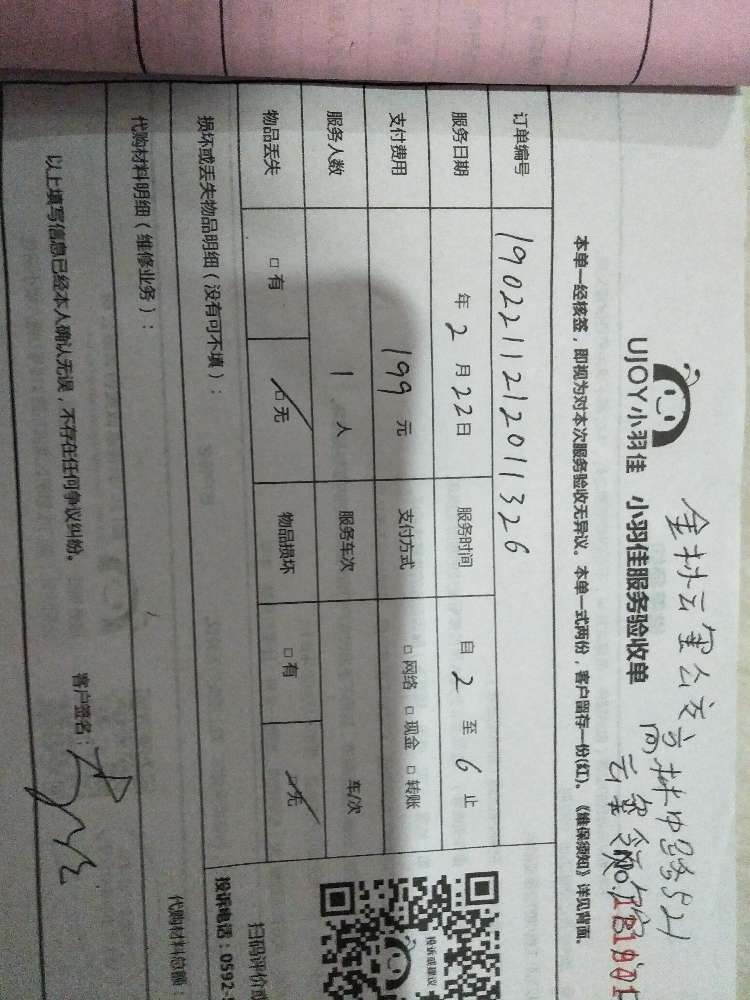 UJOY小羽佳 小羽佳服务验收单
本单一经核签，即视为对本次服务验收无异议。本单一式两份，客户留存一份(红)。《维保须知》详见背面。
订单编号 190221121201 1326
服务日期 年 2 月 22 日 服务时间 自 2 至 6 止
支付费用 199 元 支付方式 □ 网络 □ 现金 □ 转账
服务人数 1 人 服务车次 车/次
物品丢失 □ 有 □ 无 物品损坏 □ 有 □ 无
损坏或丢失物品明细（没有可不填）：
代购材料明细（维修业务）： 代购材料总额：
以上填写信息已经本人确认无误，不存在任何争议纠纷。 客户签名：
投诉或建议
扫码评价或
投诉电话：0592-5